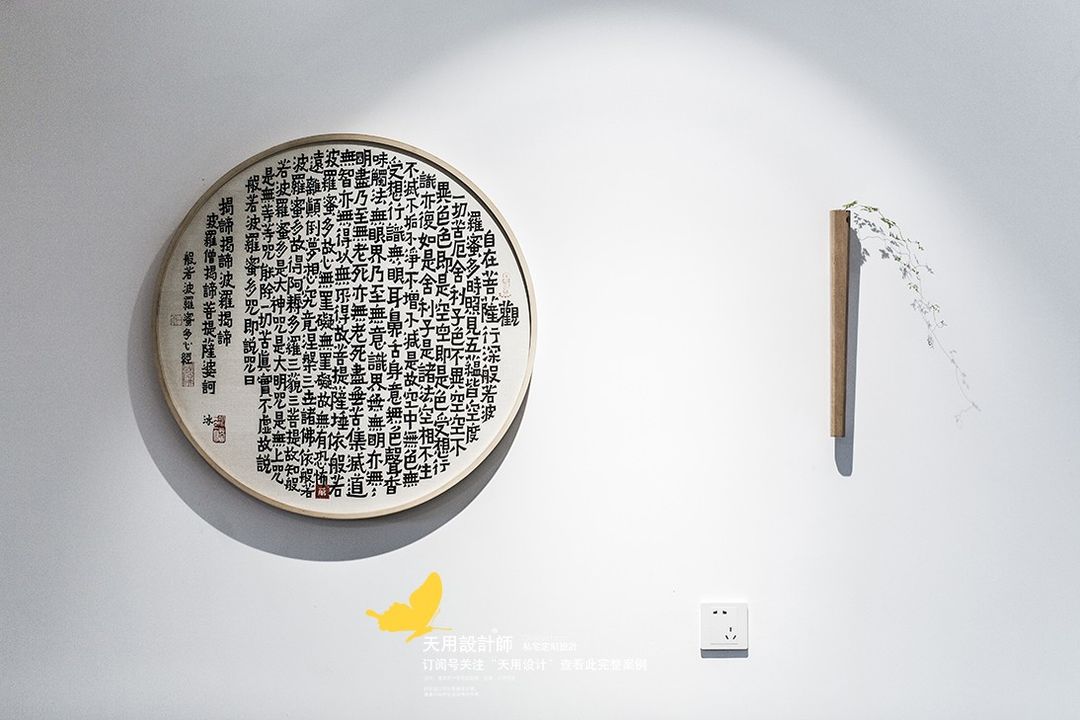 觀
自在菩薩行深般若波
羅蜜多時照見五蘊皆空度
一切苦厄舍利子色不異空空不
異色色即是空空即是色受想行
識亦復如是舍利子是諸法空相不生
不滅不垢不淨不增不減是故空中無色無
受想行識無眼耳鼻舌身意無色聲香
味觸法無眼界乃至無意識界無無明亦無
明盡乃至無老死亦無老死盡無苦集滅道
無智亦無得以無所得故菩提薩埵依般若
波羅蜜多故心無罣礙無罣礙故無有恐怖
遠離顛倒夢想究竟涅槃三世諸佛依般若
波羅蜜多故得阿耨多羅三藐三菩提故知般
若波羅蜜多是大神咒是大明咒是無上咒
是無等等咒能除一切苦真實不虛故說
般若波羅蜜多咒即說咒曰
揭諦揭諦波羅揭諦
波羅僧揭諦菩提薩婆訶
般若波羅蜜多心經
冰
天用設計師 私宅定制設計
订阅号关注“天用设计”查看此完整案例